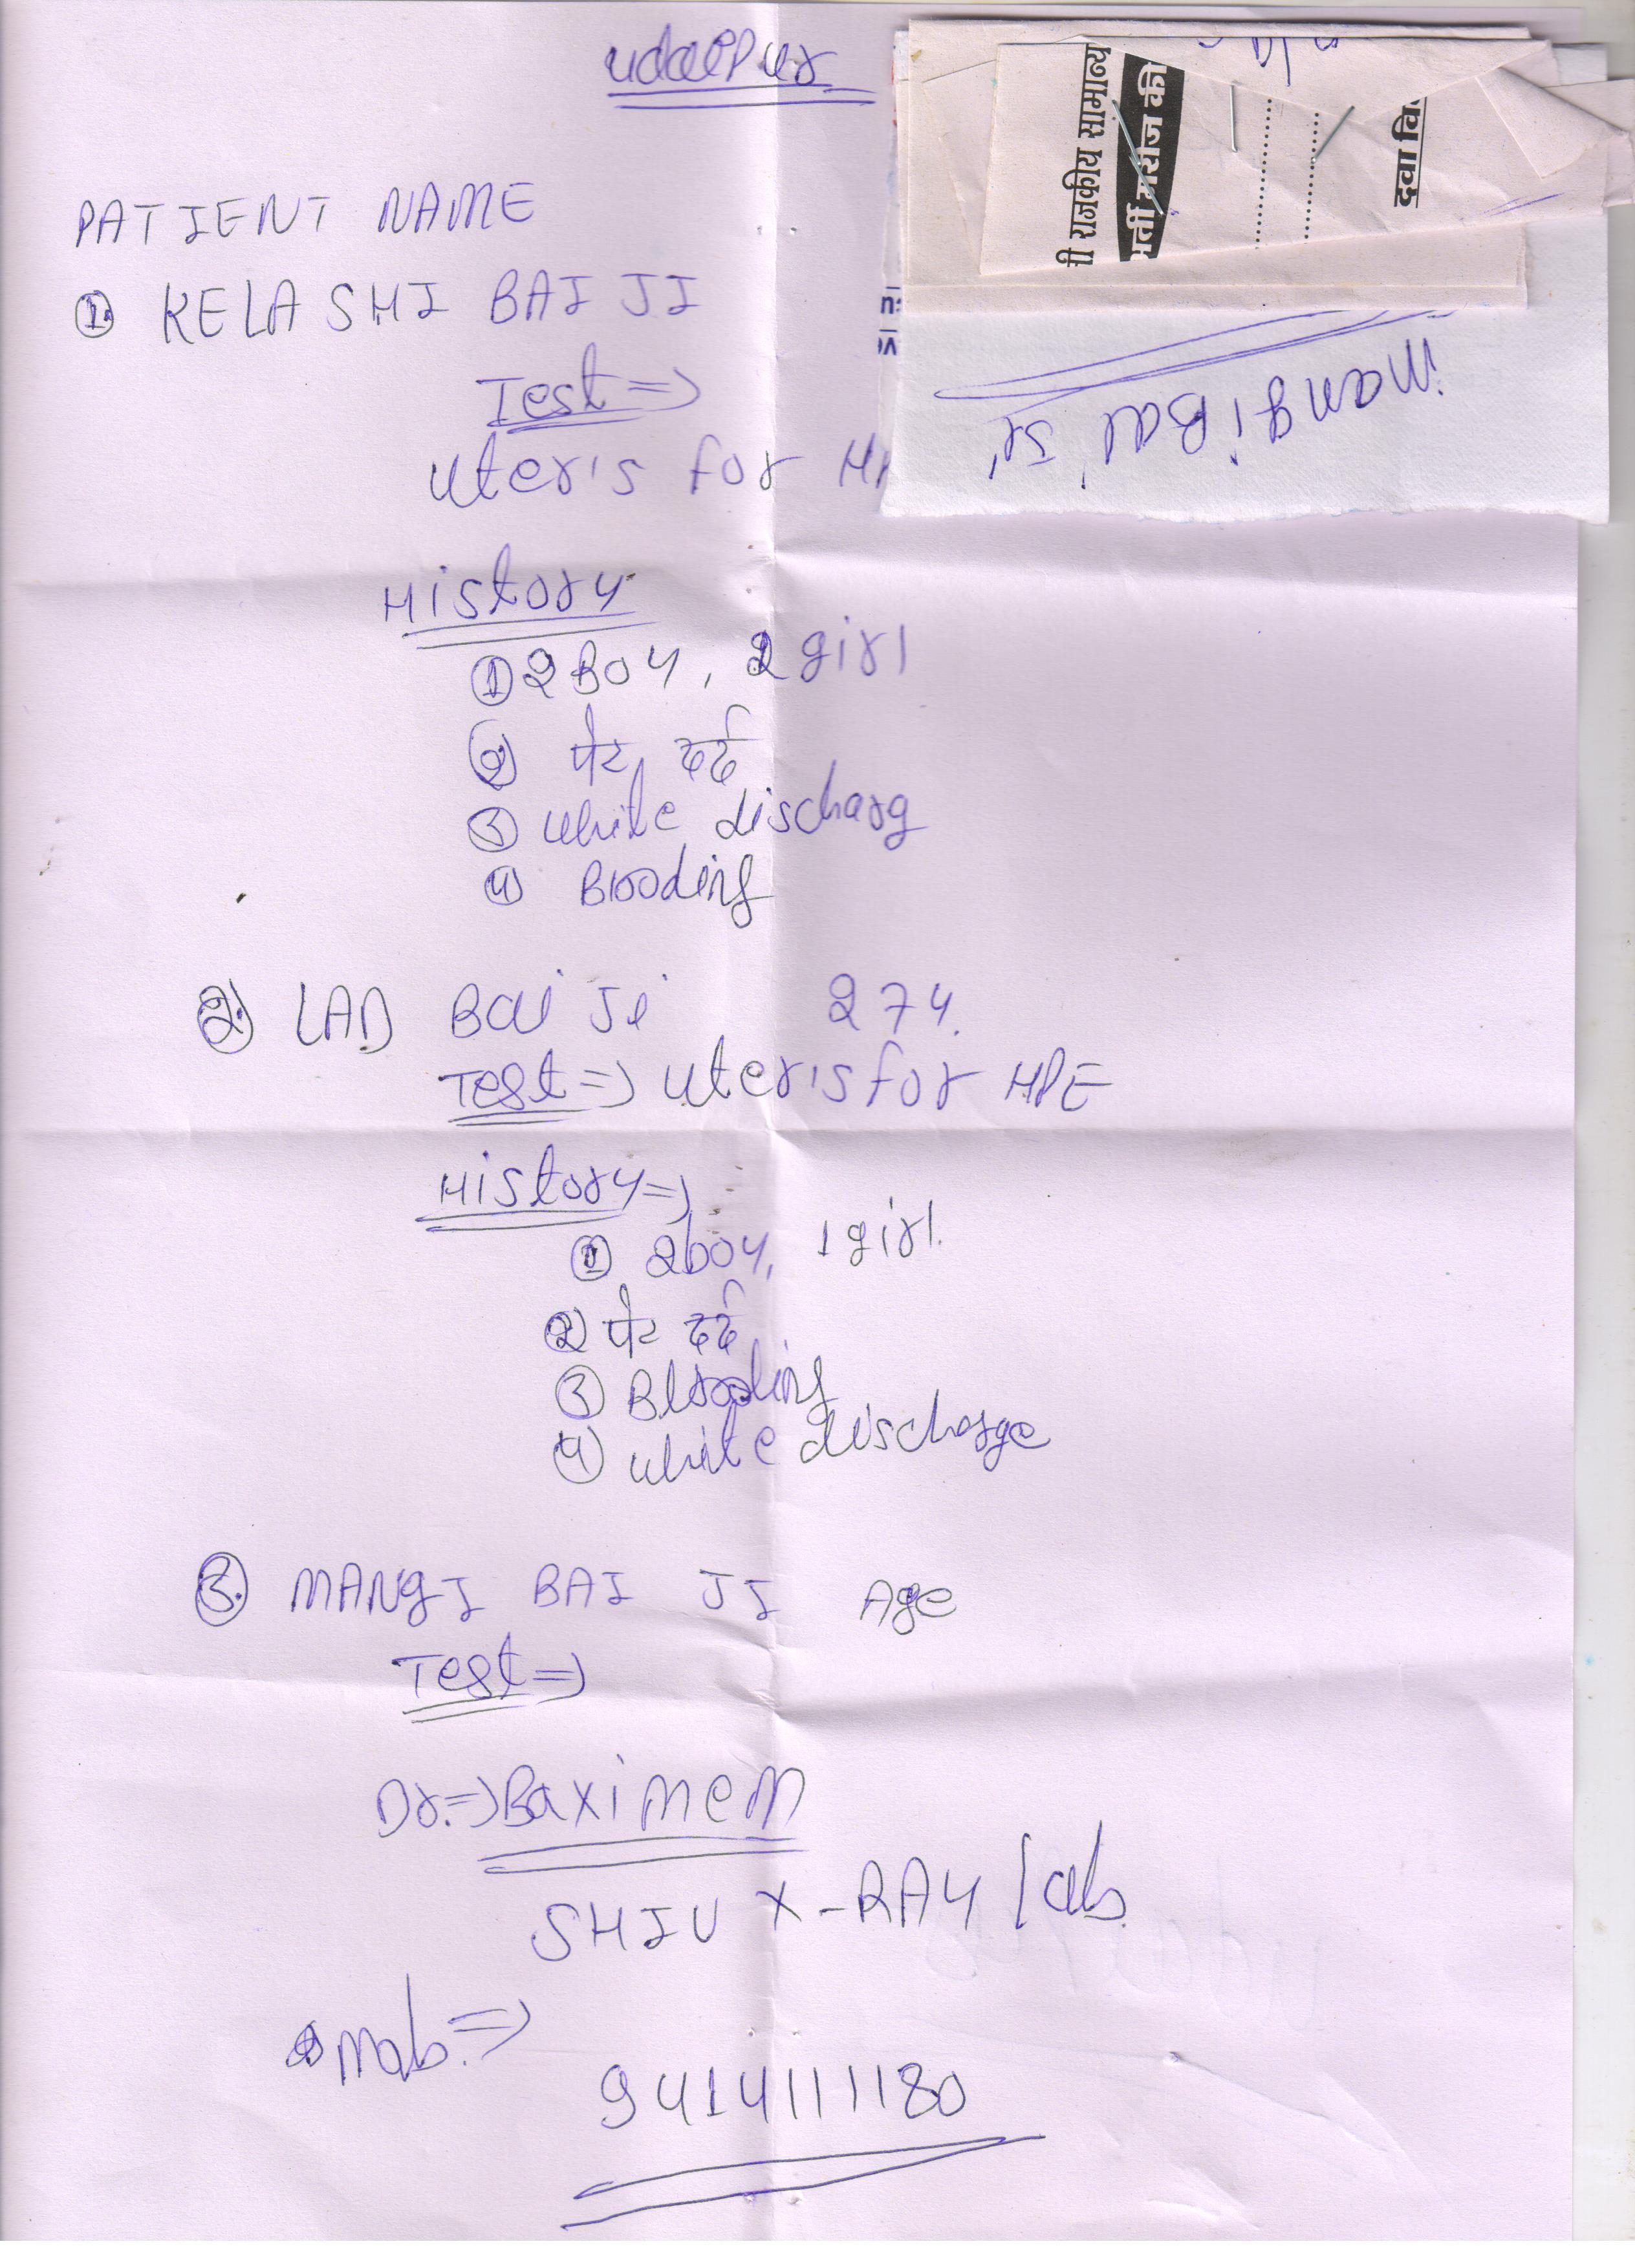 udaipur
PATIENT NAME
① KELASHI BAI JI
Test =>
uteris for
History
① 2 Boy, 2 girl
② पेट दर्द
③ white discharg
④ Blooding
② LAD Bai Ji 27 y.
Test => uteris for HPE
History =>
① 2 boy, 1 girl.
② पेट दर्द
③ Blooding
④ white discharge
③ MANGI BAI JI Age
Test =>
Dr. => Baxi mem
SHIV X-RAY lab.
mob. =>
9414111180
राजकीय सामान्य
मरीज की
दवा
mangi Bai Ji